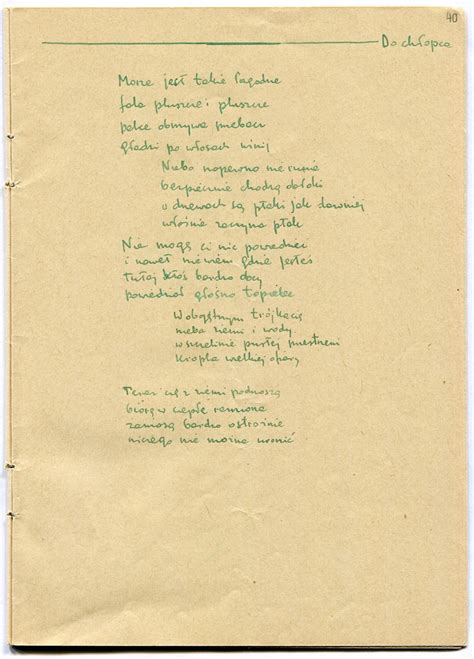 40
Do chłopca
Morze jest takie łagodne
fala pluszcze i pluszcze
palce obmywa
gładzi po włosach winij
Niebo napewno nie runie
bezpiecznie chodzą obłoki
u drzewach są ptaki jak dawniej
właśnie zaczyna ptak
Nie mogę ci nic powiedzieć
i nawet nie wiem gdzie jesteś
tutaj ktoś bardzo obcy
powiedział głośno topielec
W obojętnym trójkącie
nieba ziemi i wody
w szczelinie pustej przestrzeni
kropla wielkiej
Teraz cię z ziemi podnoszą
biorą w ciepłe ramiona
zanoszą bardzo ostrożnie
niczego nie można uronić